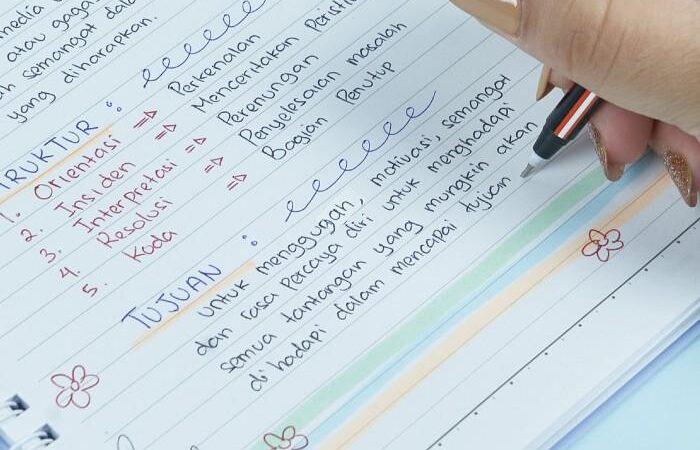 media
atau gaga
h semangat dala
yang diharapkan.
RUKTUR :
1. Orientasi ⇒ Perkenalan
2. Insiden ⇒ Menceritakan Peristi
3. Interpretasi ⇒ Perenungan
4. Resolusi ⇒ Penyelesaian masalah
5. Koda ⇒ Bagian Penutup
TUJUAN :
untuk menggugah, motivasi, semangat
dan rasa percaya diri untuk menghadapi
semua tantangan yang mungkin akan
di hadapi dalam mencapai tujuan